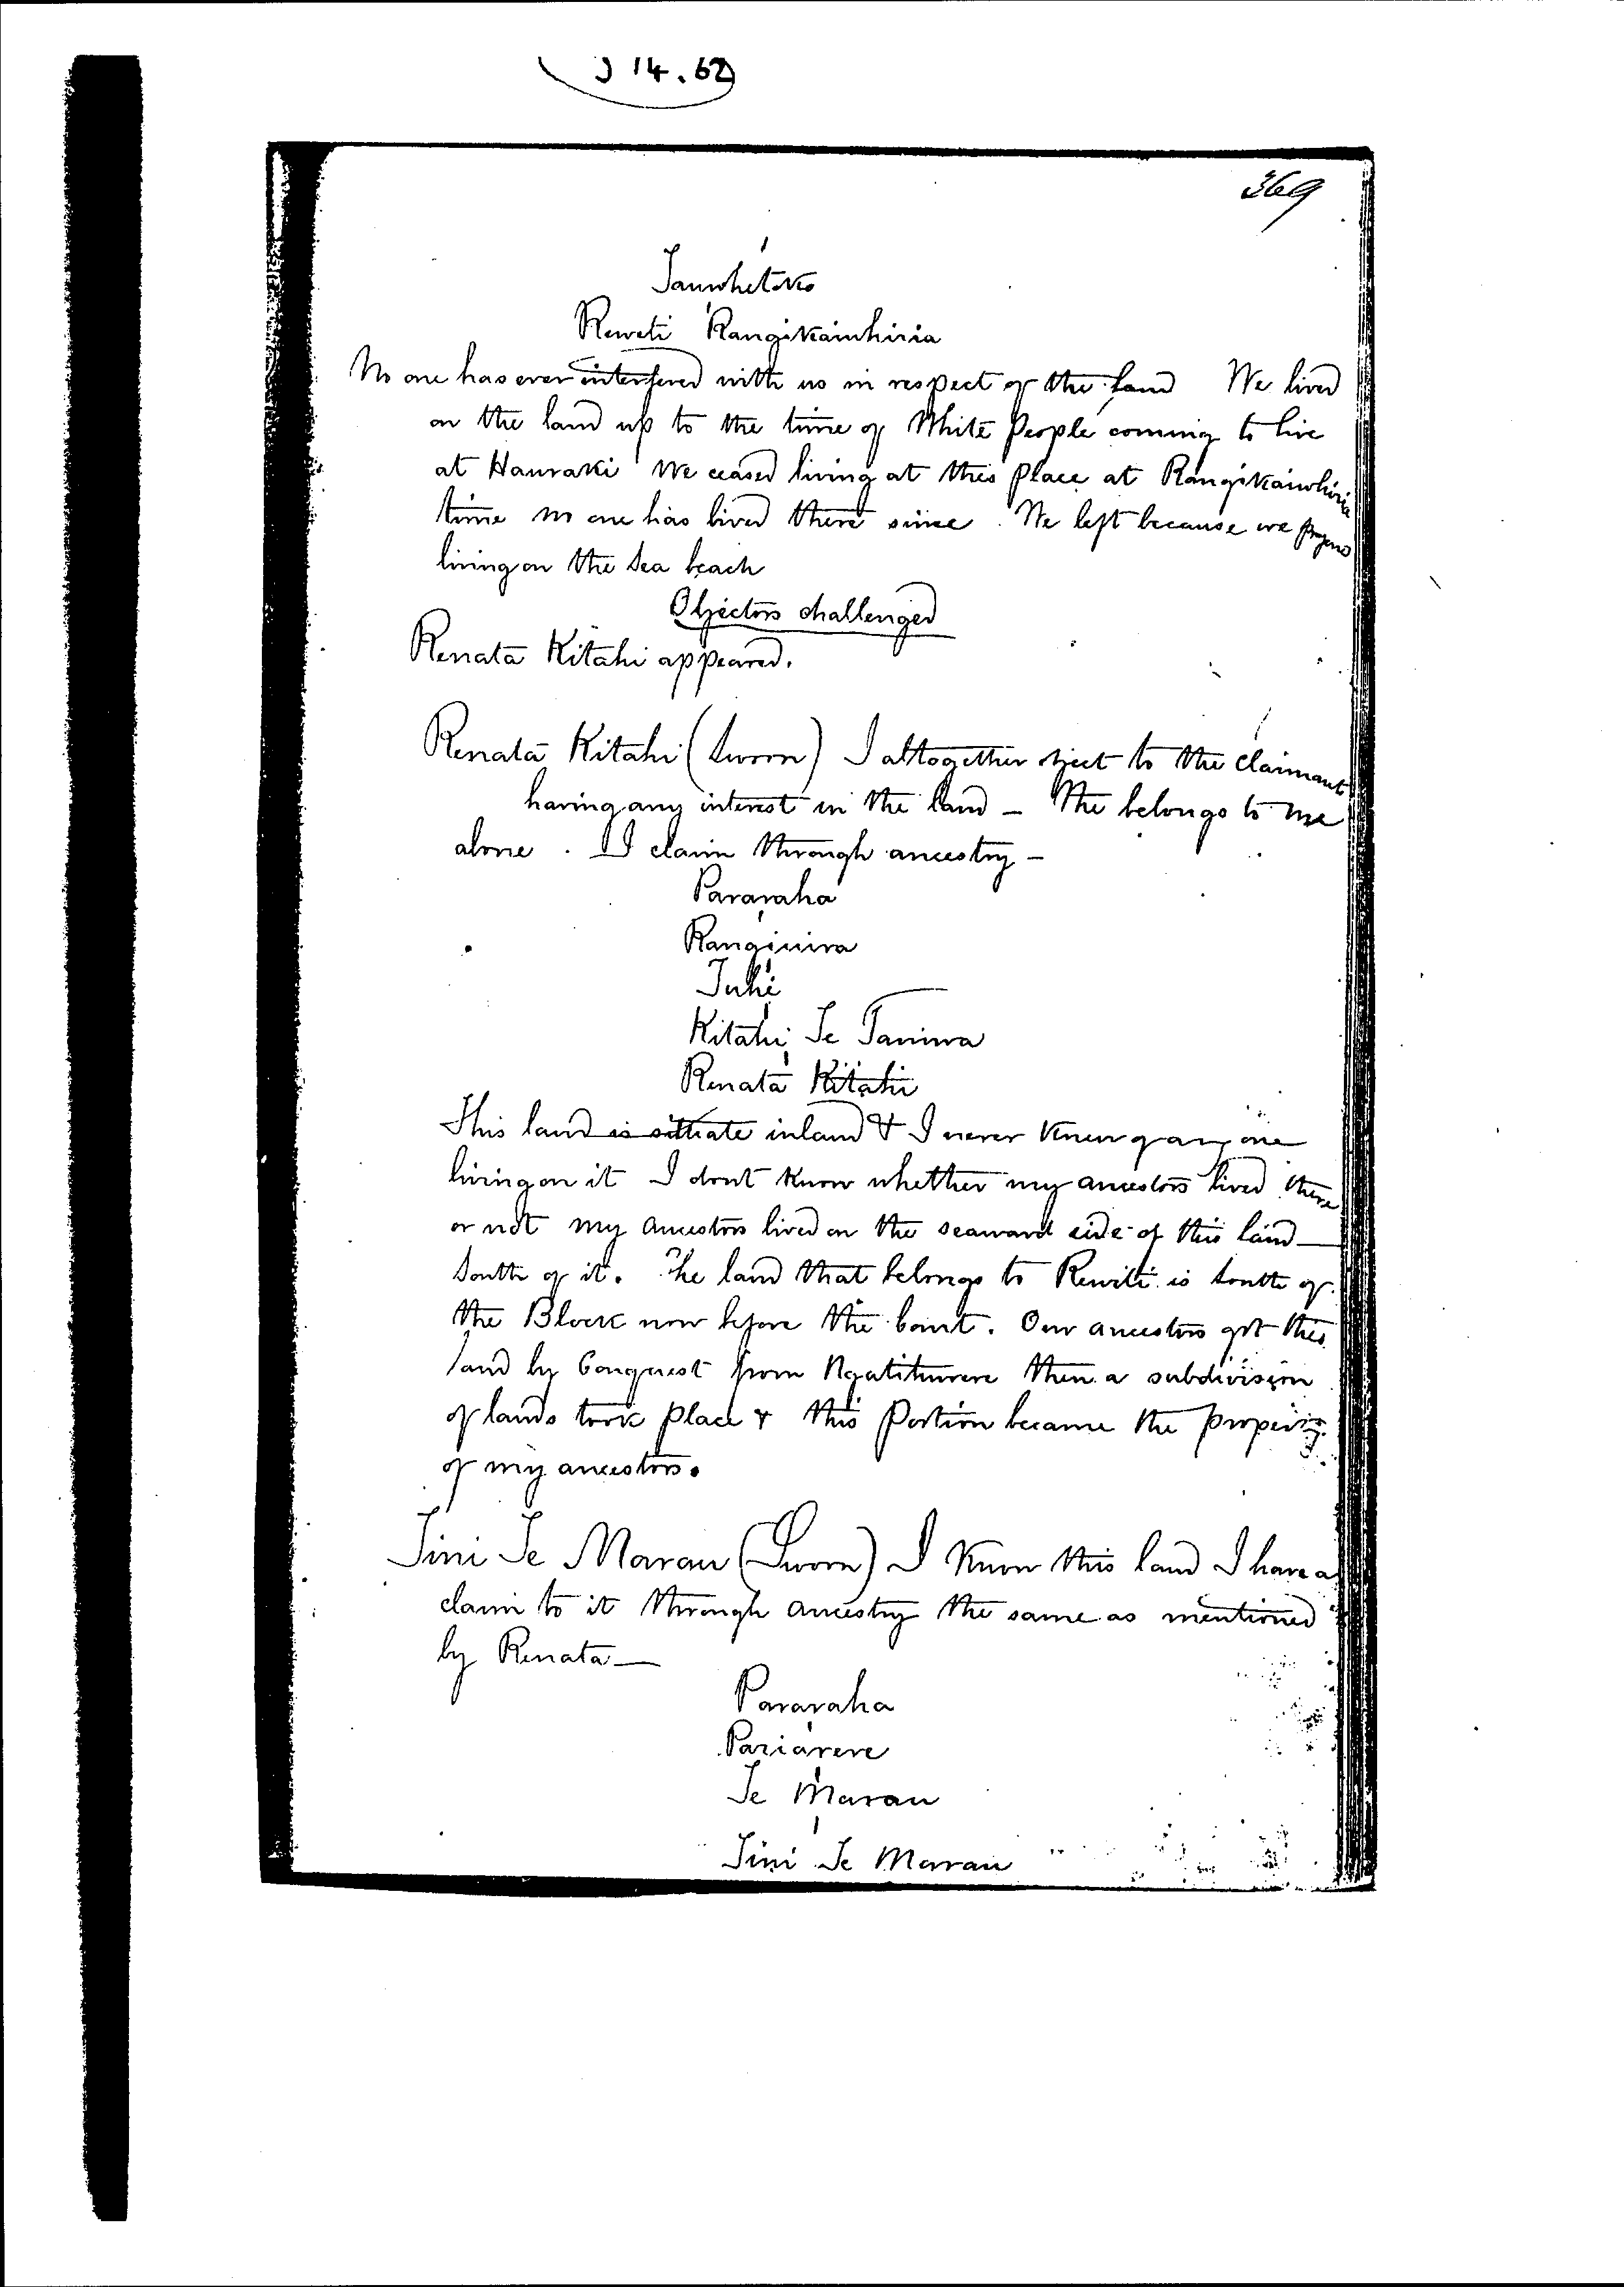 J 14.62
369
Tauwhetoko
Reweti Rangikaiwhiria
No one has ever interfered with us in respect of the land We lived
on the land up to the time of White People coming to live
at Hauraki We ceased living at this place at Rangikaiwhiria
time no one has lived there since. We left because we
living on the Sea beach
Objectors challenged
Renata Kitahi appeared.
Renata Kitahi (Sworn) I altogether object to the claimants
having any interest in the land – The belongs to me
alone. I claim through ancestry –
Pararaha
Ranginiwa
Tuhi
Kitahi Te Taniwa
Renata Kitahi
This land is situate inland & I never knew of any one
living on it I dont know whether my ancestors lived there
or not my ancestors lived on the seaward side of this land –
South of it. The land that belongs to Reweti is South of
the Block now before the Court. Our ancestors got this
land by Conquest from Then a subdivision
of lands took place & this Portion became the property
of my ancestors.
Tini Te Marau (Sworn) I know this land I have a
claim to it through ancestry the same as mentioned
by Renata –
Pararaha
Pariarere
Te Marau
Tini Te Marau